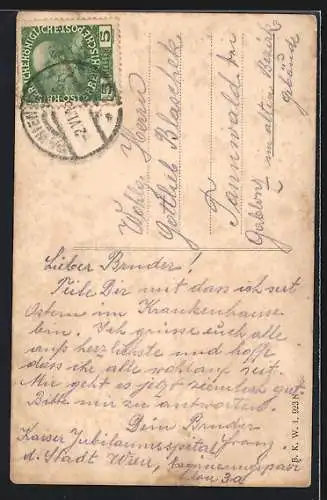 5
Wohlg. Herrn
Gottlieb Blaschek
Tannwald
Gablonz im alten Bezirk
gebäude
Lieber Bruder!
Teile Dir mit dass ich seit
Ostern im Krankenhause
bin. Ich grüsse euch alle
aufs herzlichste und hoffe
dass ihr alle wohlauf seit.
Mir geht es jetzt ziemlich gut
Bitte mir zu antworten.
Dein Bruder
Franz
Kaiser Jubiläumsspital
d. Stadt Wien,
3a
B. K. W. I. 923